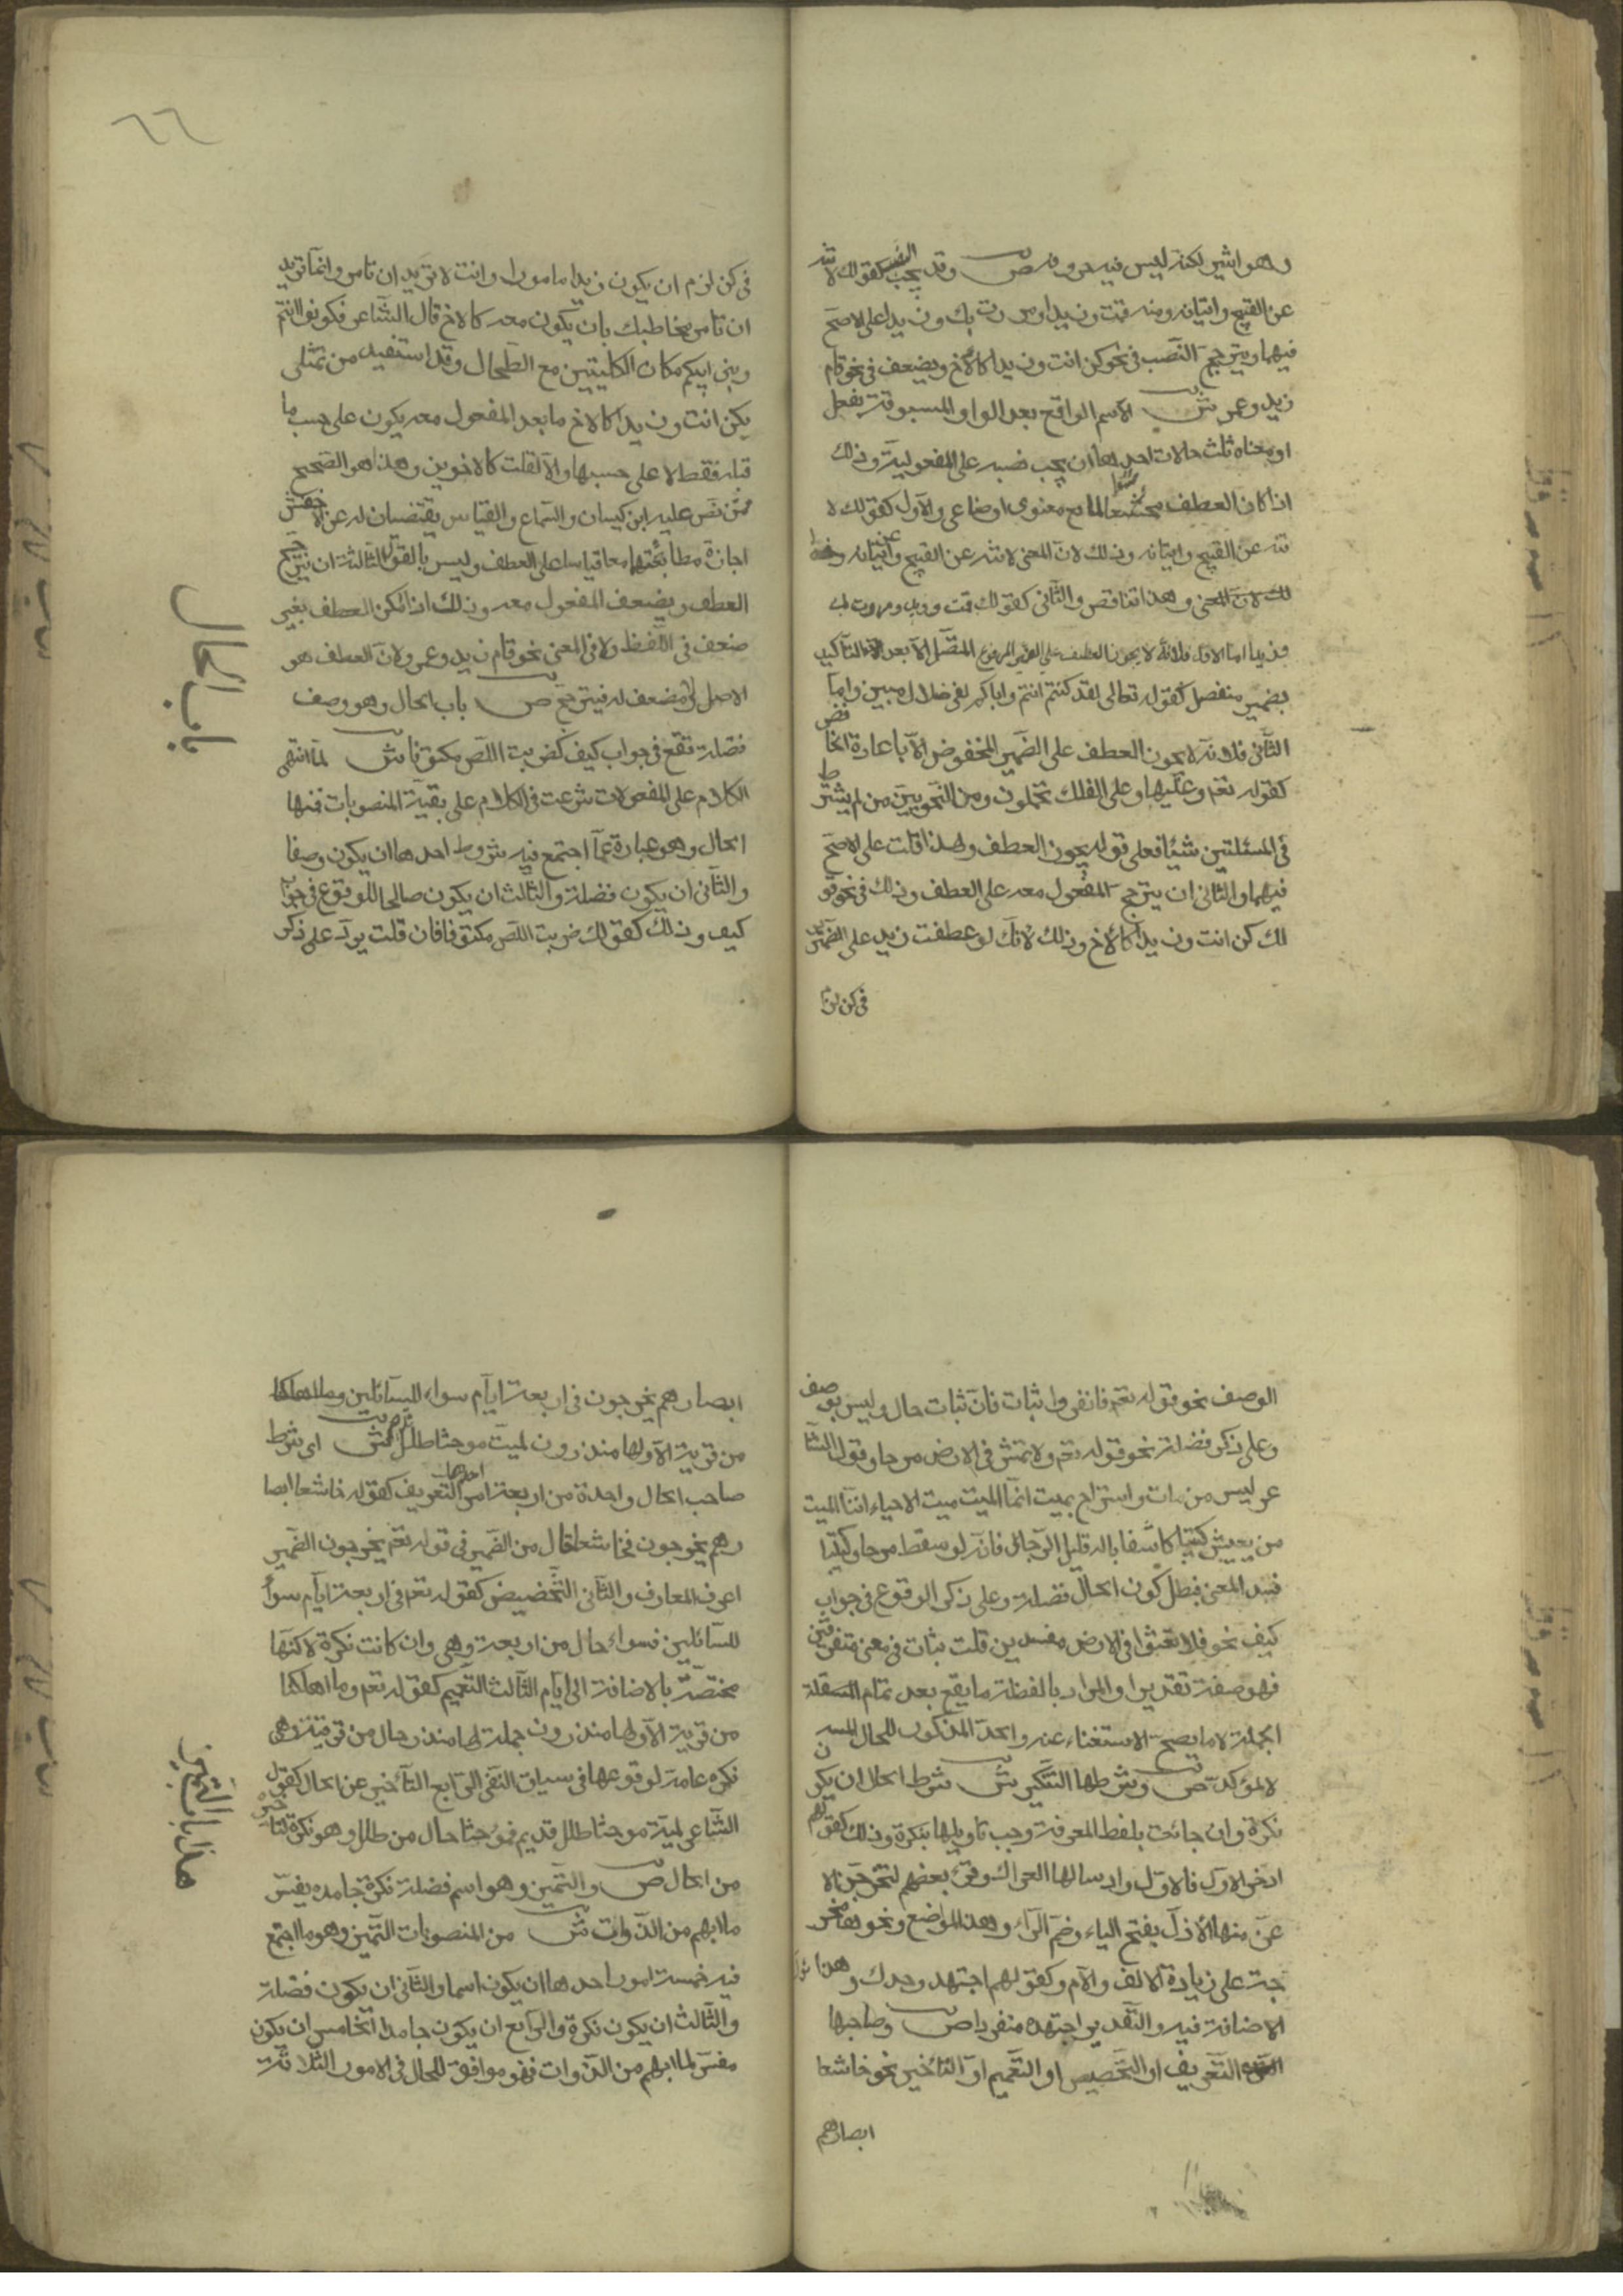 وهو اشير لكنه ليس فيه حروفه ص وقد يجب النصب كقولك لا تنه
عن القبيح واتيانه ومنه قمت وزيدا ومررت بك وزيدا على الاصح
فيهما ويترجح النصب في نحو كن انت وزيدا كالاخ ويضعف في نحو قام
زيد وعمرو ش الاسم الواقع بعد الواو المسبوقة بفعل
او معناه ثلث حالات احديها ان يجب نصبه على المفعولية وذلك
اذا كان العطف ممتنعا لمانع معنوي او صناعي والاول كقولك لا
تنه عن القبيح واتيانه وذلك لان المعنى لا تنه عن القبيح وعن اتيانه
وهذا تناقض والثاني كقولك قمت وزيدا ومررت بك
وزيدا اما الاول فلانه لا يجوز العطف على الضمير المرفوع المتصل الا بعد التاكيد
بضمير منفصل كقوله تعالى لقد كنتم انتم واباكم في ضلال مبين واما
الثاني فلانه لا يجوز العطف على الضمير المخفوض الا باعادة الخافض
كقوله تعم وعليها وعلى الفلك تحملون ومن النحويين من لم يشترط
في المسئلتين شيئا فعلى قوله يجوز العطف ولهذا قلت على الاصح
فيهما والثاني ان يترجح المفعول معه على العطف وذلك في نحو قو
لك كن انت وزيدا كالاخ وذلك لانك لو عطفت زيد على الضمير
في كن لزم
٦٦
في كن لزم ان يكون زيدا مامورا وانت لا تريد ان تامره وانما تريد
ان تامر مخاطبك بان يكون معه كالاخ قال الشاعر فكونوا انتم
وبني ابيكم مكان الكليتين مع الطحال وقد استفيد من تمثلي
بكن انت وزيدا كالاخ ما بعد المفعول معه يكون على حسب ما
قبله فقط لا على حسبهما والا لقلت كالاخوين وهذا هو الصحيح
ممن نص عليه ابن كيسان والسماع والقياس يقتضيان له عن الاخفش
اجازة مطابقتهما معا قياسا على العطف وليس بالقول الثالثة ان يترجح
العطف ويضعف المفعول معه وذلك اذا امكن العطف بغير
ضعف في اللفظ ولا في المعنى نحو قام زيد وعمرو لان العطف هو
الاصل لا مضعف له فيترجح ص باب الحال وهو وصف
فضلة تقع في جواب كيف كضربت اللص مكتوفا ش لما انتهى
الكلام على المفعولات شرعت في الكلام على بقية المنصوبات فمنها
الحال وهو عبارة عما اجتمع فيه شروط احدها ان يكون وصفا
والثاني ان يكون فضلة والثالث ان يكون صالحا للوقوع في جواب
كيف وذلك كقولك ضربت اللص مكتوفا فان قلت يرد على ذكر
باب الحال
الوصف نحو قوله تعم فانفروا ثبات فان ثبات حال وليس بوصف
وعلى ذكر فضلة نحو قوله تعم ولا تمش في الارض مرحا وقول الشا
عر ليس من مات واستراح بميت انما الميت ميت الاحياء انما الميت
من يعيش كئيبا كاسفا باله قليل الرجاء فانه لو سقط مرحا وكئيبا
فسد المعنى فبطل كون الحال فضلة وعلى ذكر الوقوع في جواب
كيف نحو فلا تعثوا في الارض مفسدين قلت ثبات في معنى متفرقين
فهو صفة تقديرا والمراد بالفضلة ما يقع بعد تمام
الجملة لا ما يصح الاستغناء عنه والحد المذكور للحال المبينة
لا المؤكدة ص وشرطها التنكير ش شرط الحال ان يكون
نكرة وان جائت بلفظ المعرفة وجب تاويلها بنكرة وذلك كقولهم
ادخلوا الاول فالاول وارسالها العراك وقرئ بعضهم لتخرجن الا
عز منها الاذل بفتح الياء وضم الراء وهذه المواضع ونحوها مخر
جة على زيادة الالف واللام وكقولهم اجتهد وحدك وهذا
الاضافة فيه والتقدير اجتهد منفردا ص وصاحبها
التعريف او التخصيص او التعميم او التاخير نحو خاشعا
ابصارهم
ابصارهم يخرجون في اربعة ايام سواء للسائلين وما اهلكنا
من قرية الا ولها منذرون لمية موحشا طلل ش اي شرط
صاحب الحال واحدة من اربعة امور احدها التعريف كقوله خاشعا ابصا
رهم يخرجون فخاشعا حال من الضمير في قوله تعم يخرجون الضمير
اعرف المعارف والثاني التخصيص كقوله تعم في اربعة ايام سواء
للسائلين فسواء حال من اربعة وهي وان كانت نكرة لاكنها
مختصة بالاضافة الى ايام الثالث التعميم كقوله تعم وما اهلكنا
من قرية الا ولها منذرون جملة لها منذر حال من قرية وهي
نكرة عامة لوقوعها في سياق النفي الرابع التأخير عن الحال كقول
الشاعر لمية موحشا طلل قديم فموحشا حال من طلل وهو نكرة لتاخيره
من الحال ص والتميز وهو اسم فضلة نكرة جامد يفسر
ما ابهم من الذوات ش من المنصوبات التميز وهو ما اجتمع
فيه خمسة امور احدها ان يكون اسما والثاني ان يكون فضلة
والثالث ان يكون نكرة والرابع ان يكون جامدا الخامس ان يكون
مفسر لما ابهم من الذوات فهو موافق للحال في الامور الثلاثة
هذا باب التميز